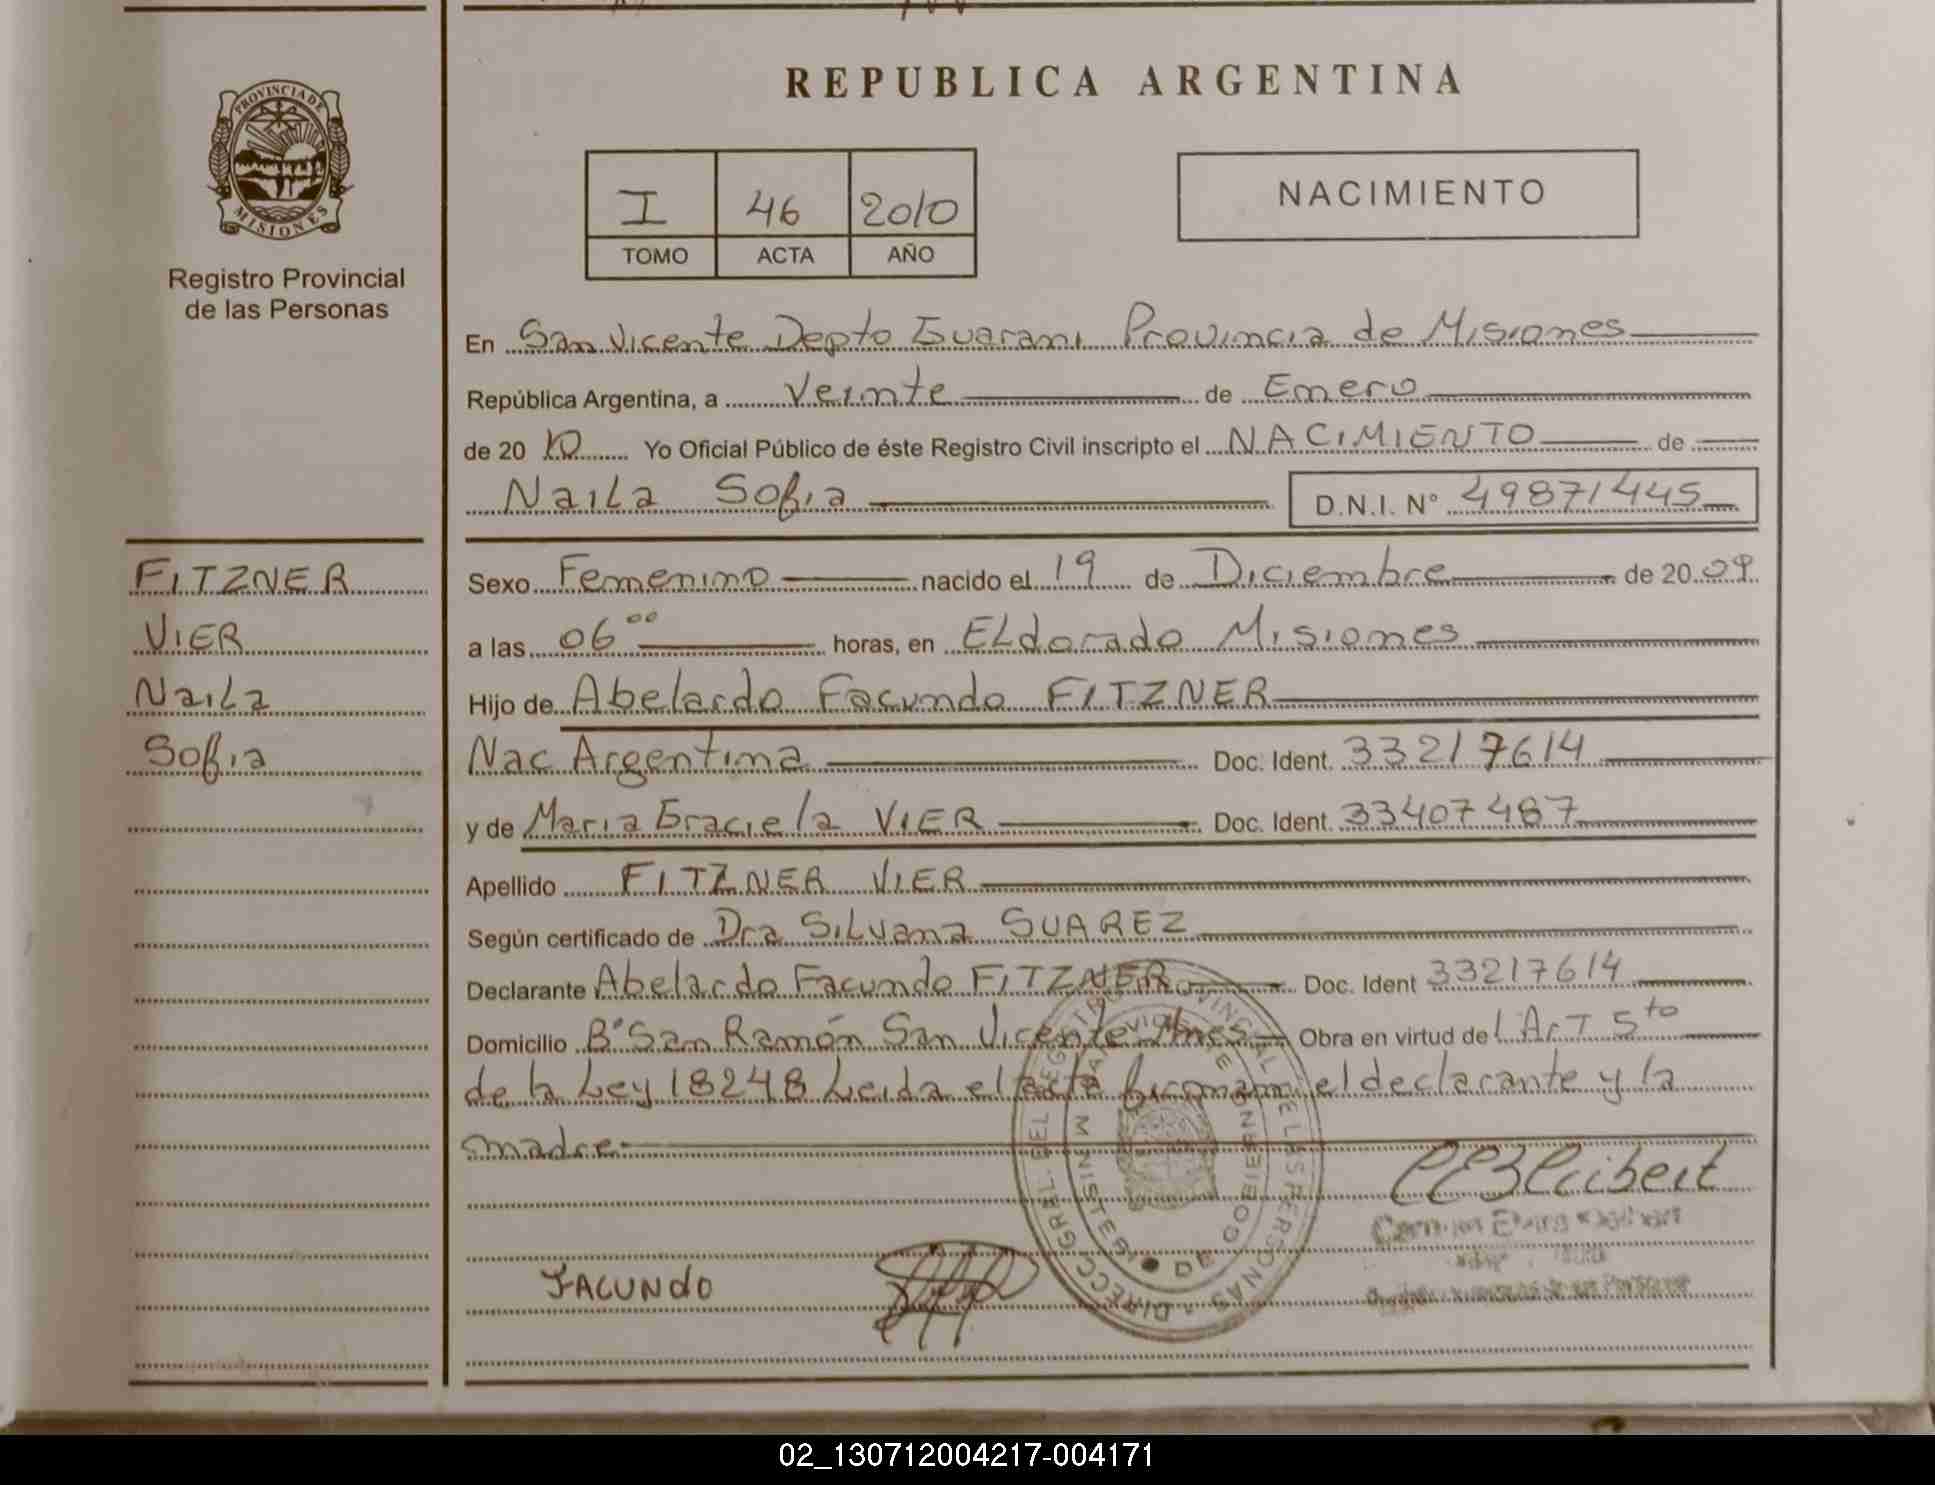 REPUBLICA ARGENTINA
PROVINCIA DE
MISIONES
Registro Provincial
de las Personas
I 46 2010
TOMO ACTA AÑO
NACIMIENTO
En San Vicente Depto Guarani Provincia de Misiones
República Argentina, a Veinte de Enero
de 20 10 Yo Oficial Público de éste Registro Civil inscripto el NACIMIENTO de
Naila Sofia D.N.I. Nº 49871445
FITZNER
VIER
Naila
Sofia
Sexo Femenino nacido el 19 de Diciembre de 20 09
a las 06 00 horas, en ELdorado Misiones
Hijo de Abelardo Facundo FITZNER
Nac Argentina Doc. Ident. 33217614
y de Maria Graciela VIER Doc. Ident. 33407487
Apellido FITZNER VIER
Según certificado de Dra SiLvana SUAREZ
Declarante Abelardo Facundo FITZNER Doc. Ident 33217614
Domicilio Bº San Ramón San Vicente Mnes Obra en virtud del ArT 5to
de la Ley 18248 Leida el acta firman el declarante y la
madre
DIRECC. GRAL. DEL REGISTRO PROVINCIAL DE LAS PERSONAS
MINISTERIO DE GOBIERNO
FACUNDO
02_130712004217-004171